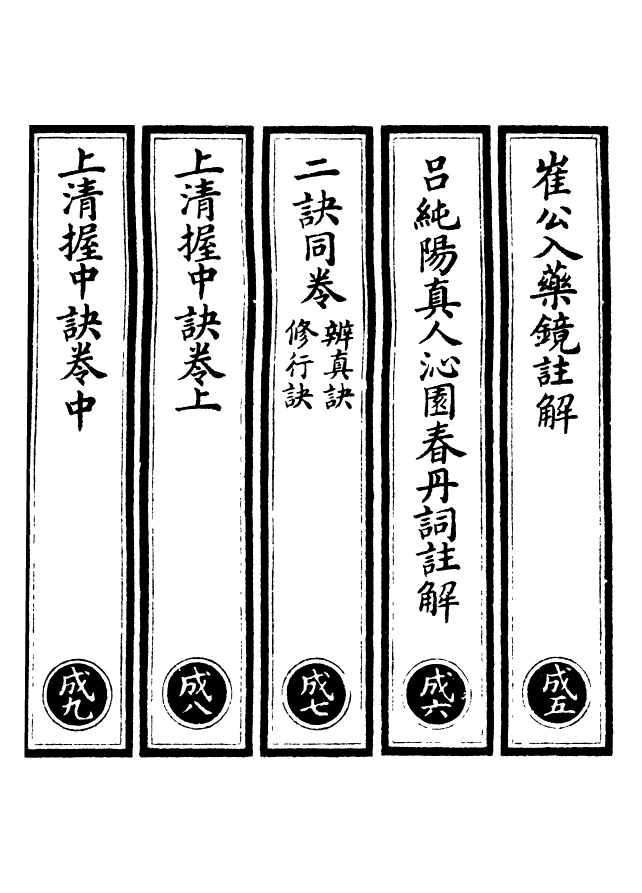 崔公入藥鏡註解
成五
呂純陽真人沁園春丹詞註解
成六
二訣同卷
辨真訣
修行訣
成七
上清握中訣卷上
成八
上清握中訣卷中
成九